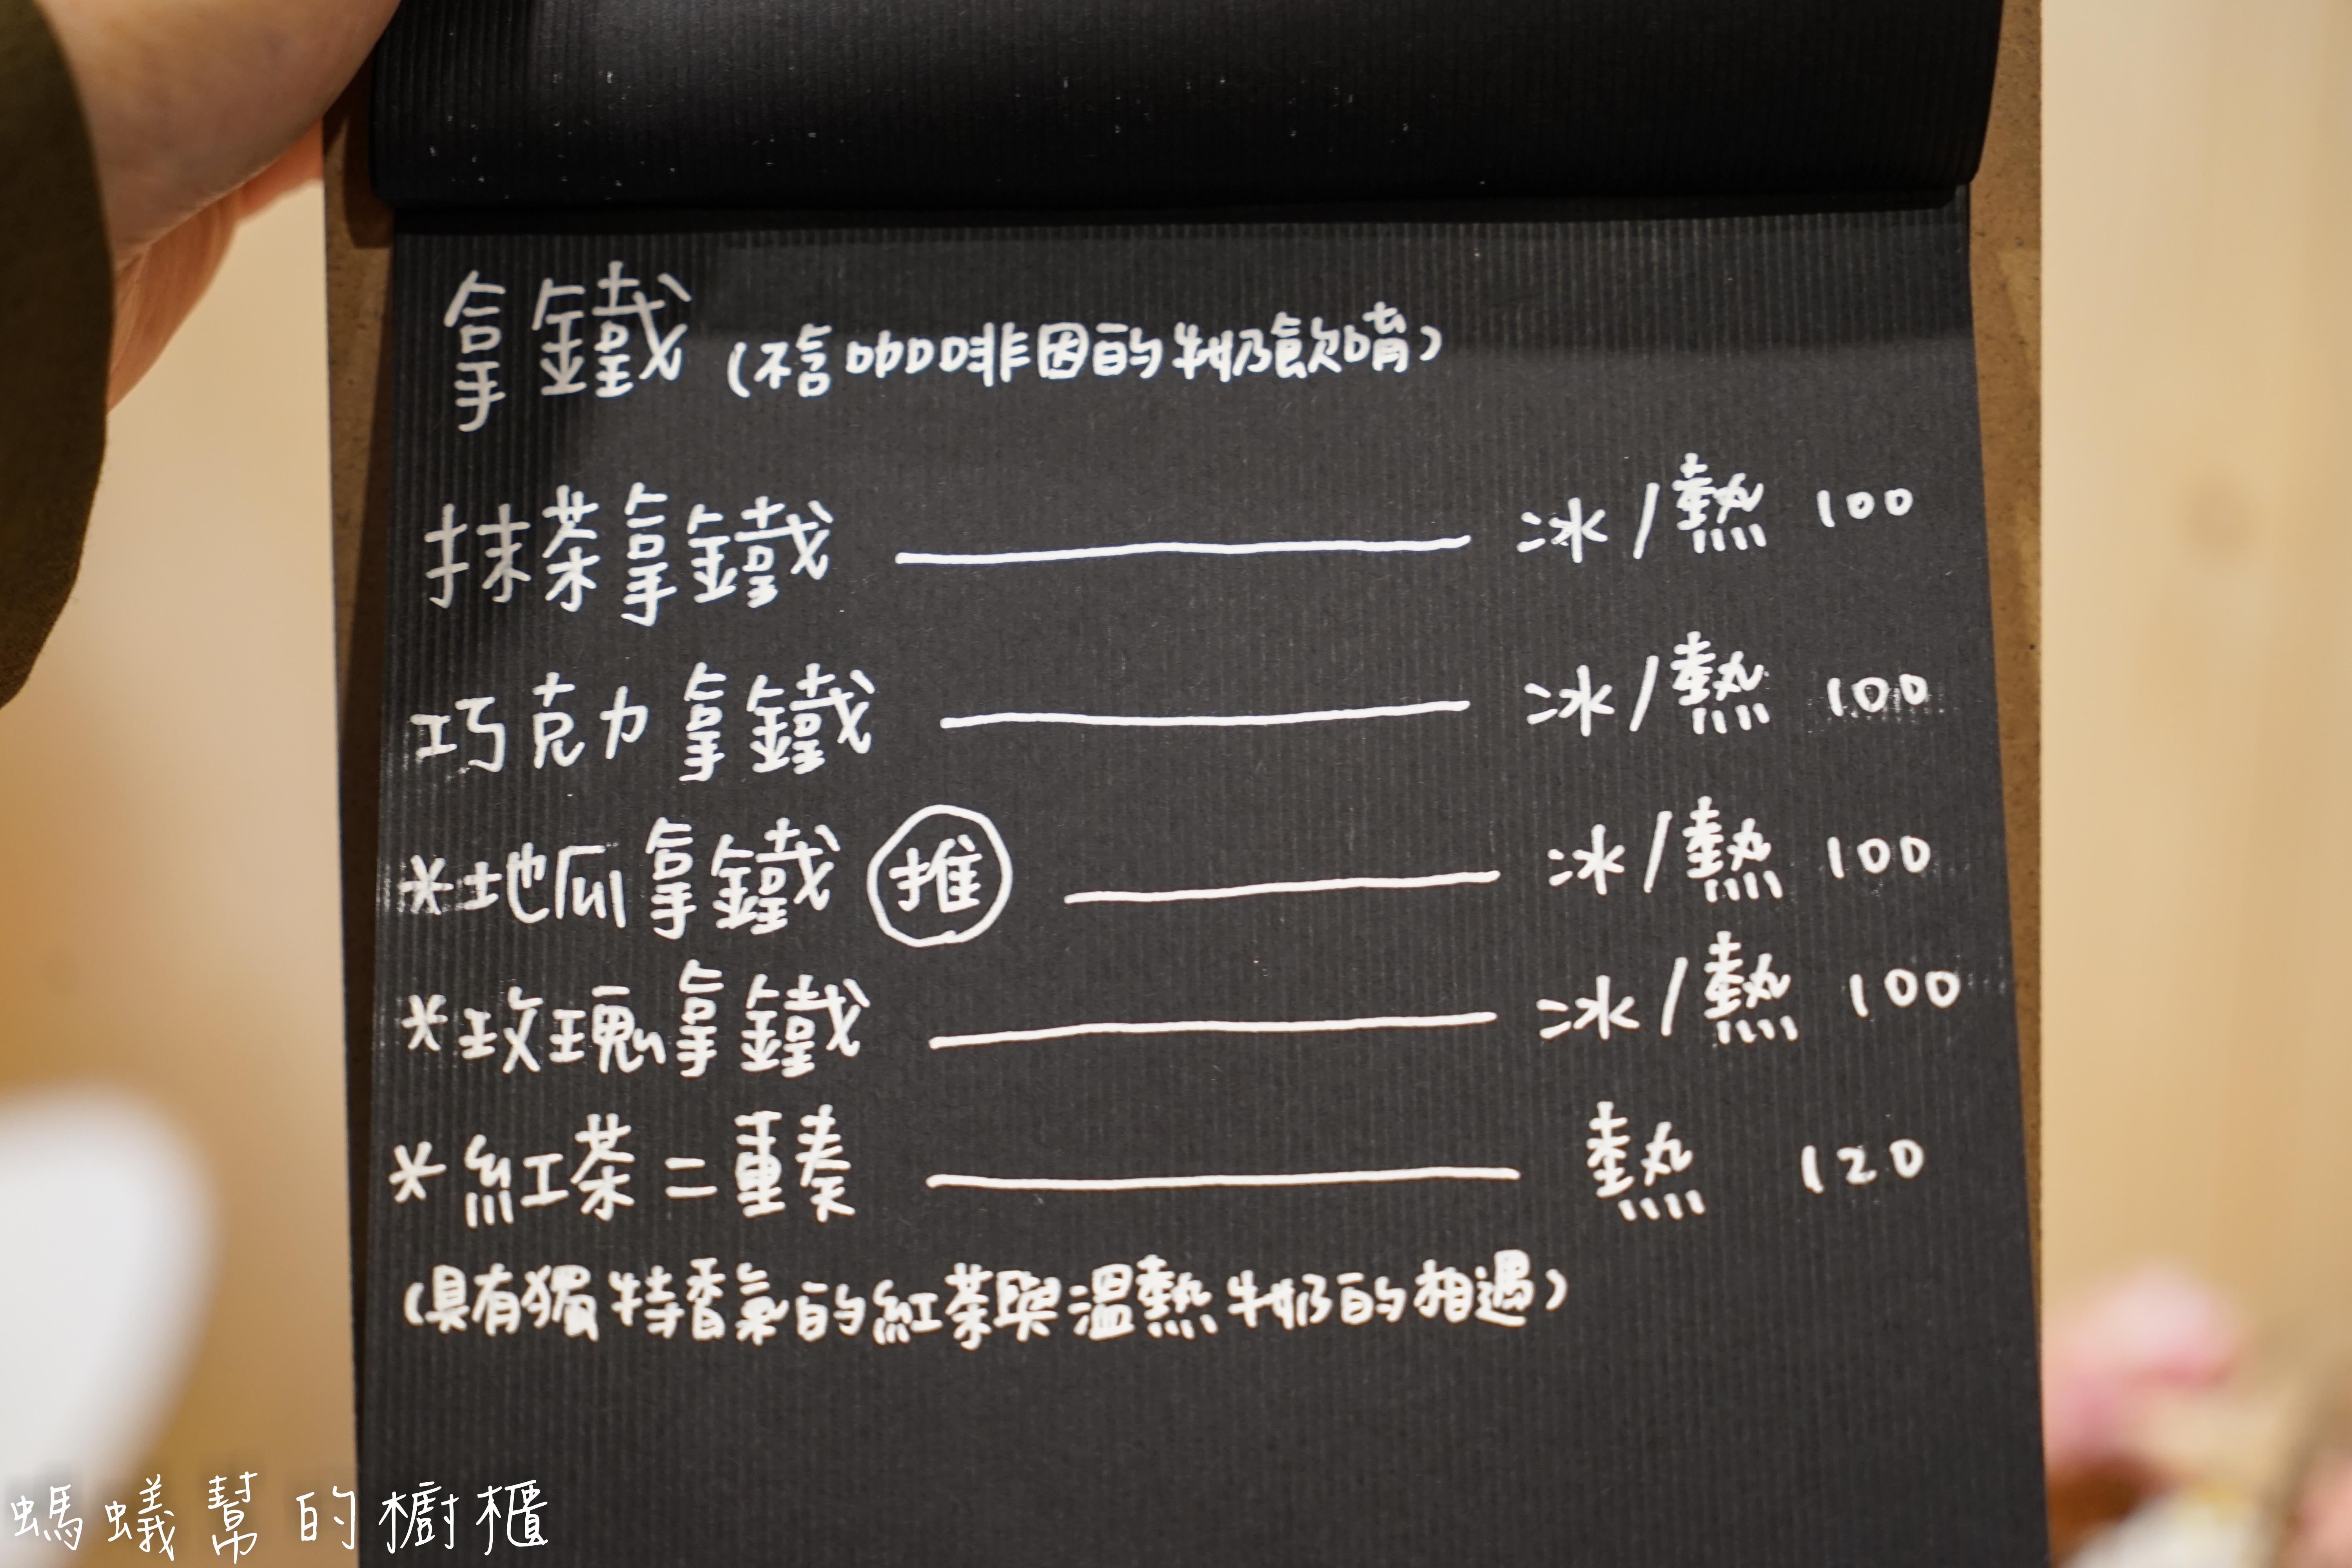 拿鐵 (不含咖啡因的牛奶飲唷)
抹茶拿鐵 冰/熱 100
巧克力拿鐵 冰/熱 100
*地瓜拿鐵 推 冰/熱 100
*玫瑰拿鐵 冰/熱 100
*紅茶二重奏 熱 120
(具有獨特香氣的紅茶與溫熱牛奶的相遇)
螞蟻幫的櫥櫃